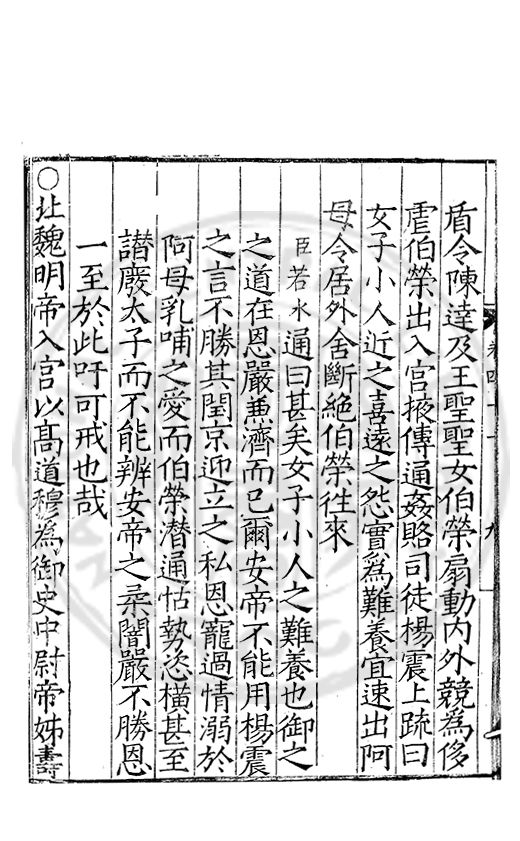 盾令陳達及王聖聖女伯榮扇動内外競為侈
虐伯榮出入宫掖傳通姦賂司徒楊震上疏曰
女子小人近之喜逺之怨實為難養宜速出阿
母令居外舍斷絶伯榮徃來
臣若水通曰甚矣女子小人之難養也御之
之道在恩嚴兼濟而已爾安帝不能用楊震
之言不勝其閏京迎立之私恩寵過情溺於
阿母乳哺之愛而伯榮潜通怙勢恣橫甚至
譖廢太子而不能辨安帝之柔闇嚴不勝恩
一至於此吁可戒也哉
○北魏明帝入宫以髙道穆為御史中尉帝姊壽
卷四十一
九